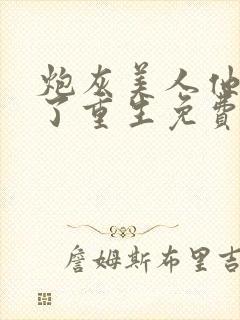 炮灰美人他
了重生免費
詹姆斯布里吉